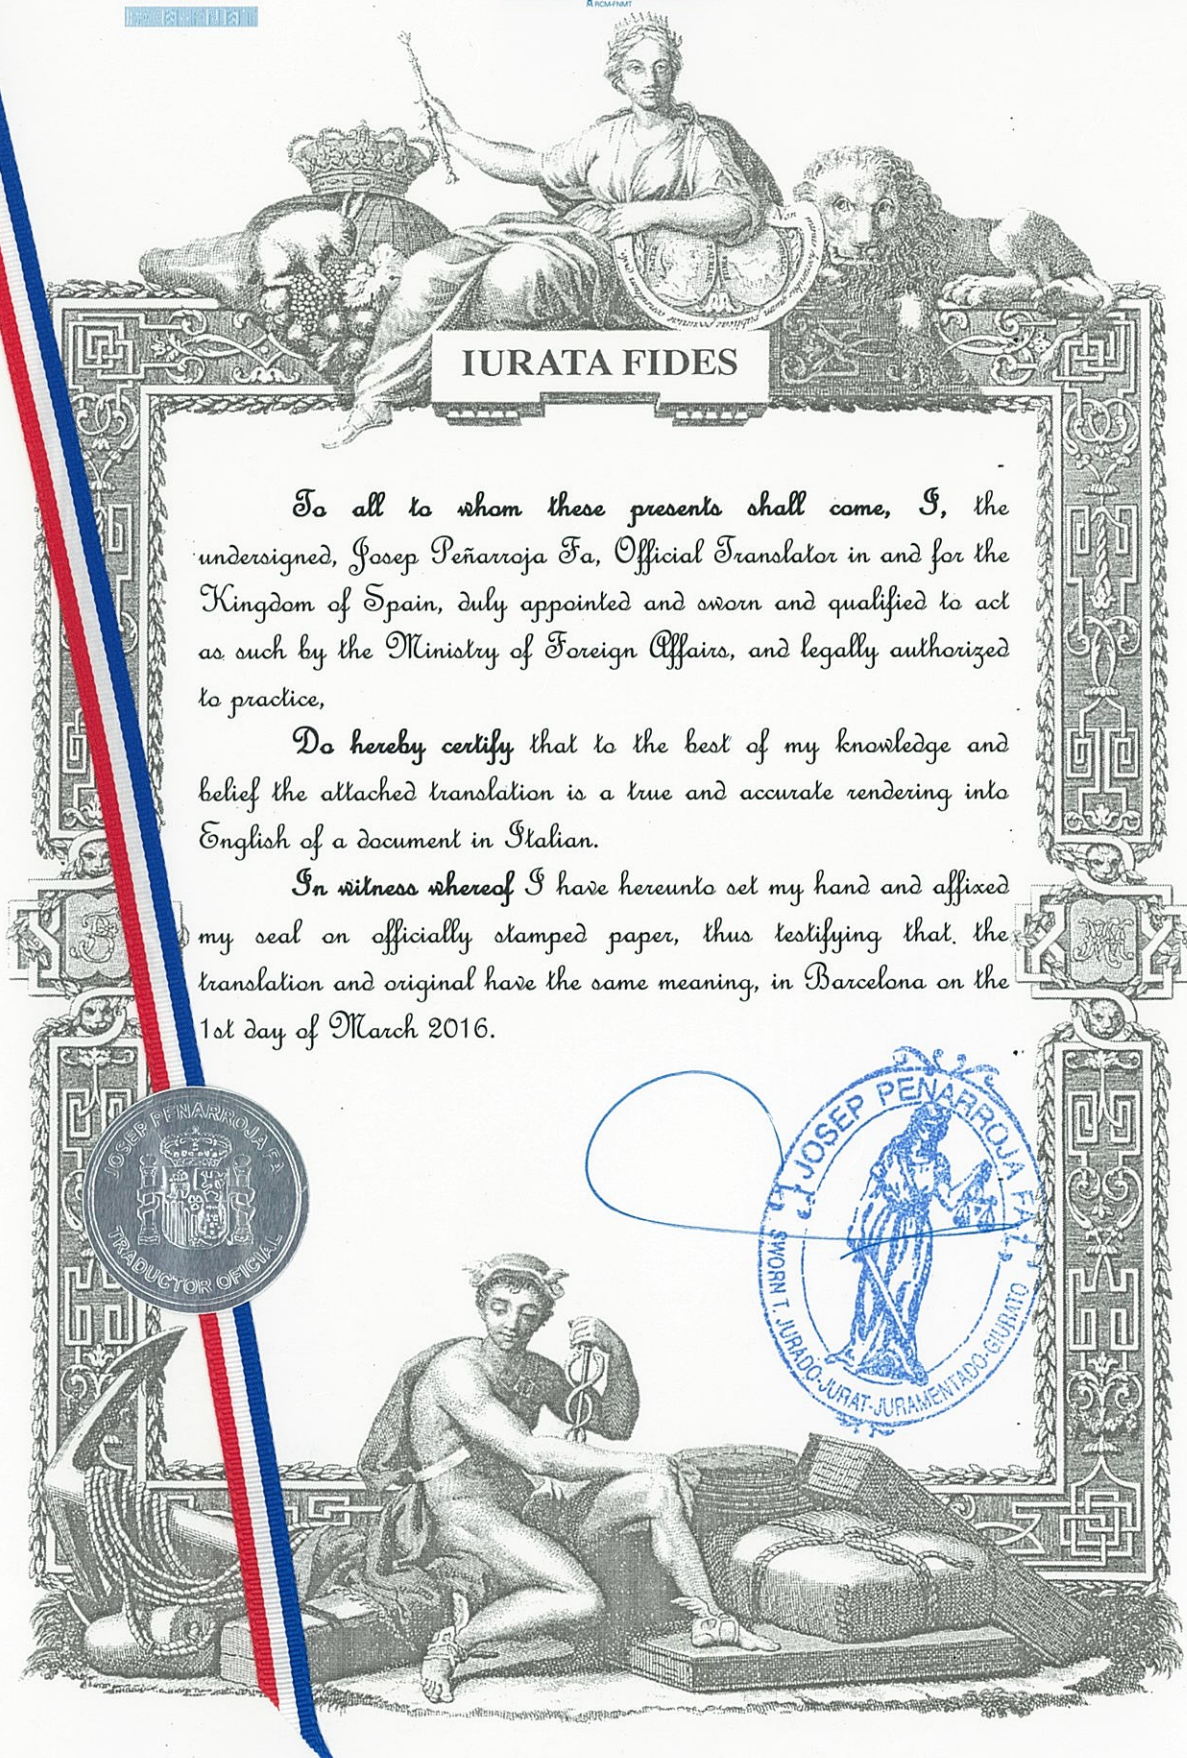 RCM-FNMT
IURATA FIDES
To all to whom these presents shall come, I, the
undersigned, Josep Peñarroja Fa, Official Translator in and for the
Kingdom of Spain, duly appointed and sworn and qualified to act
as such by the Ministry of Foreign Affairs, and legally authorized
to practice,
Do hereby certify that to the best of my knowledge and
belief the attached translation is a true and accurate rendering into
English of a document in Italian.
In witness whereof I have hereunto set my hand and affixed
my seal on officially stamped paper, thus testifying that the
translation and original have the same meaning, in Barcelona on the
1st day of March 2016.
JOSEP PEÑARROJA FA
TRADUCTOR OFICIAL
JOSEP PEÑARROJA FA
SWORN T. JURADO-JURAT-JURAMENTADO-GIURATO